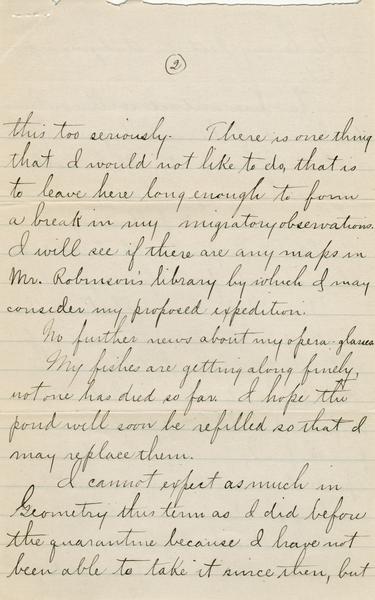 2
this too seriously. There is one thing
that I would not like to do, that is
to leave here long enough to form
a break in my migratory observations.
I will see if there are any maps in
Mr. Robinson's library by which I may
consider my proposed expedition.
No further news about my opera-glasses
My fishes are getting along finely,
not one has died so far. I hope the
pond will soon be refilled so that I
may replace them.
I cannot expect as much in
Geometry this term as I did before
the quarantine because I have not
been able to take it since then, but